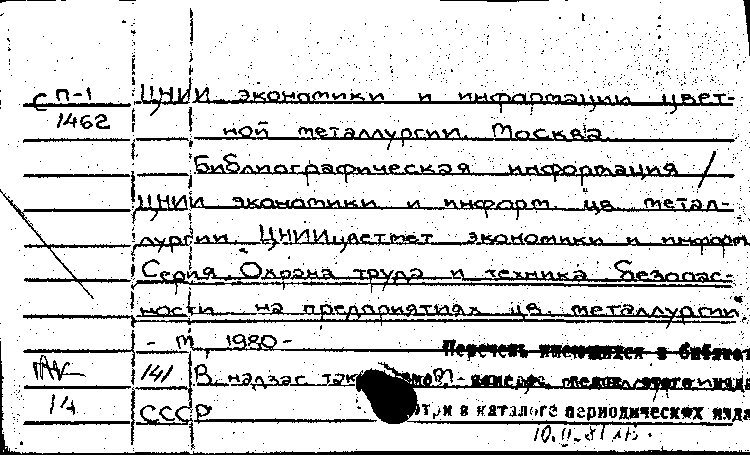 С П-1 ЦНИИ экономики и информации цвет-
1462 ной металлургии. Москва.
Библиографическая информация /
ЦНИИ экономики и информ. цв. метал-
лургии. ЦНИИцветмет экономики и информ
Серия. Охрана труда и техника безопас-
ности на предприятиях цв. металлургии.
- М, 1980 -
Перечень имеющихся в библиот
141 В надзаг. также
14 СССР
три в каталоге периодических изда
10.II.81